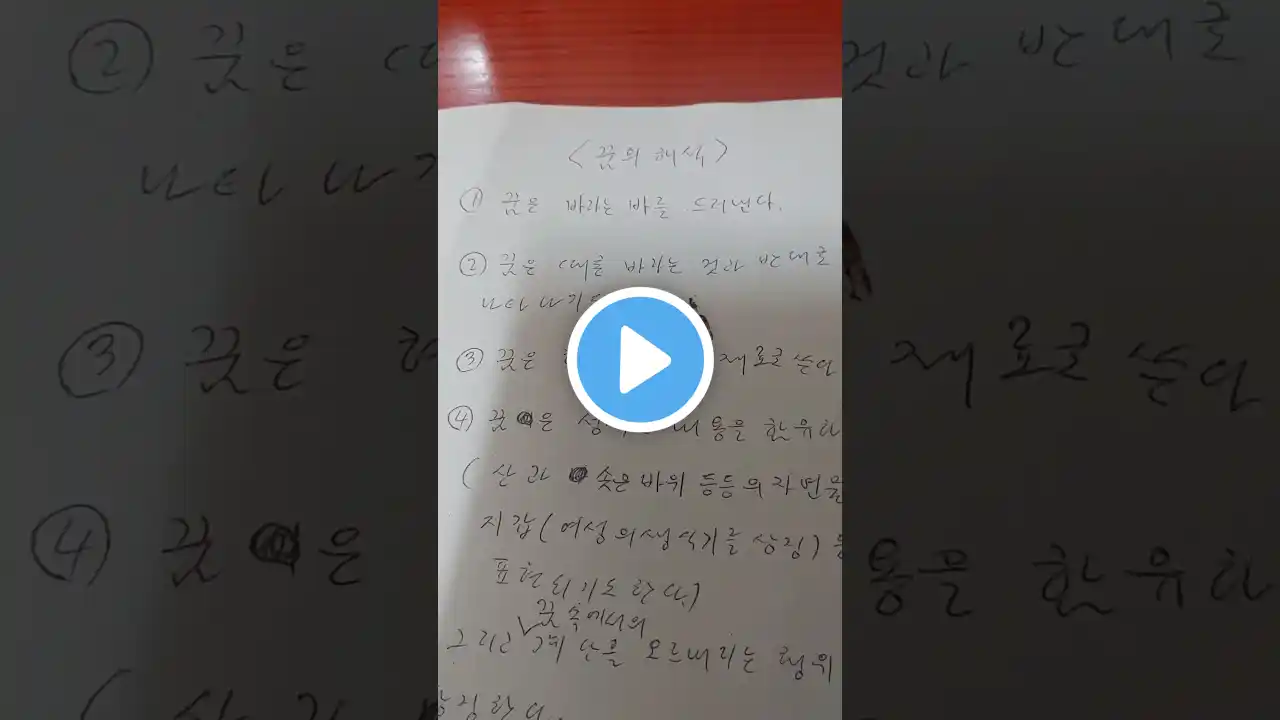 <꿈의 해석>
① 꿈은 바라는 바를 드러낸다.
② 꿈은 때론 바라는 것과 반대로
나타나기도
③ 꿈은 재료로 쓴다
④ 꿈은 통을 환유하
(산과 솟은 바위 등등의 자연물
지갑(여성의 생식기를 상징) 등
표현되기도 한다.)
꿈속에서의
그리고 계단을 오르내리는 행위
상징한다.